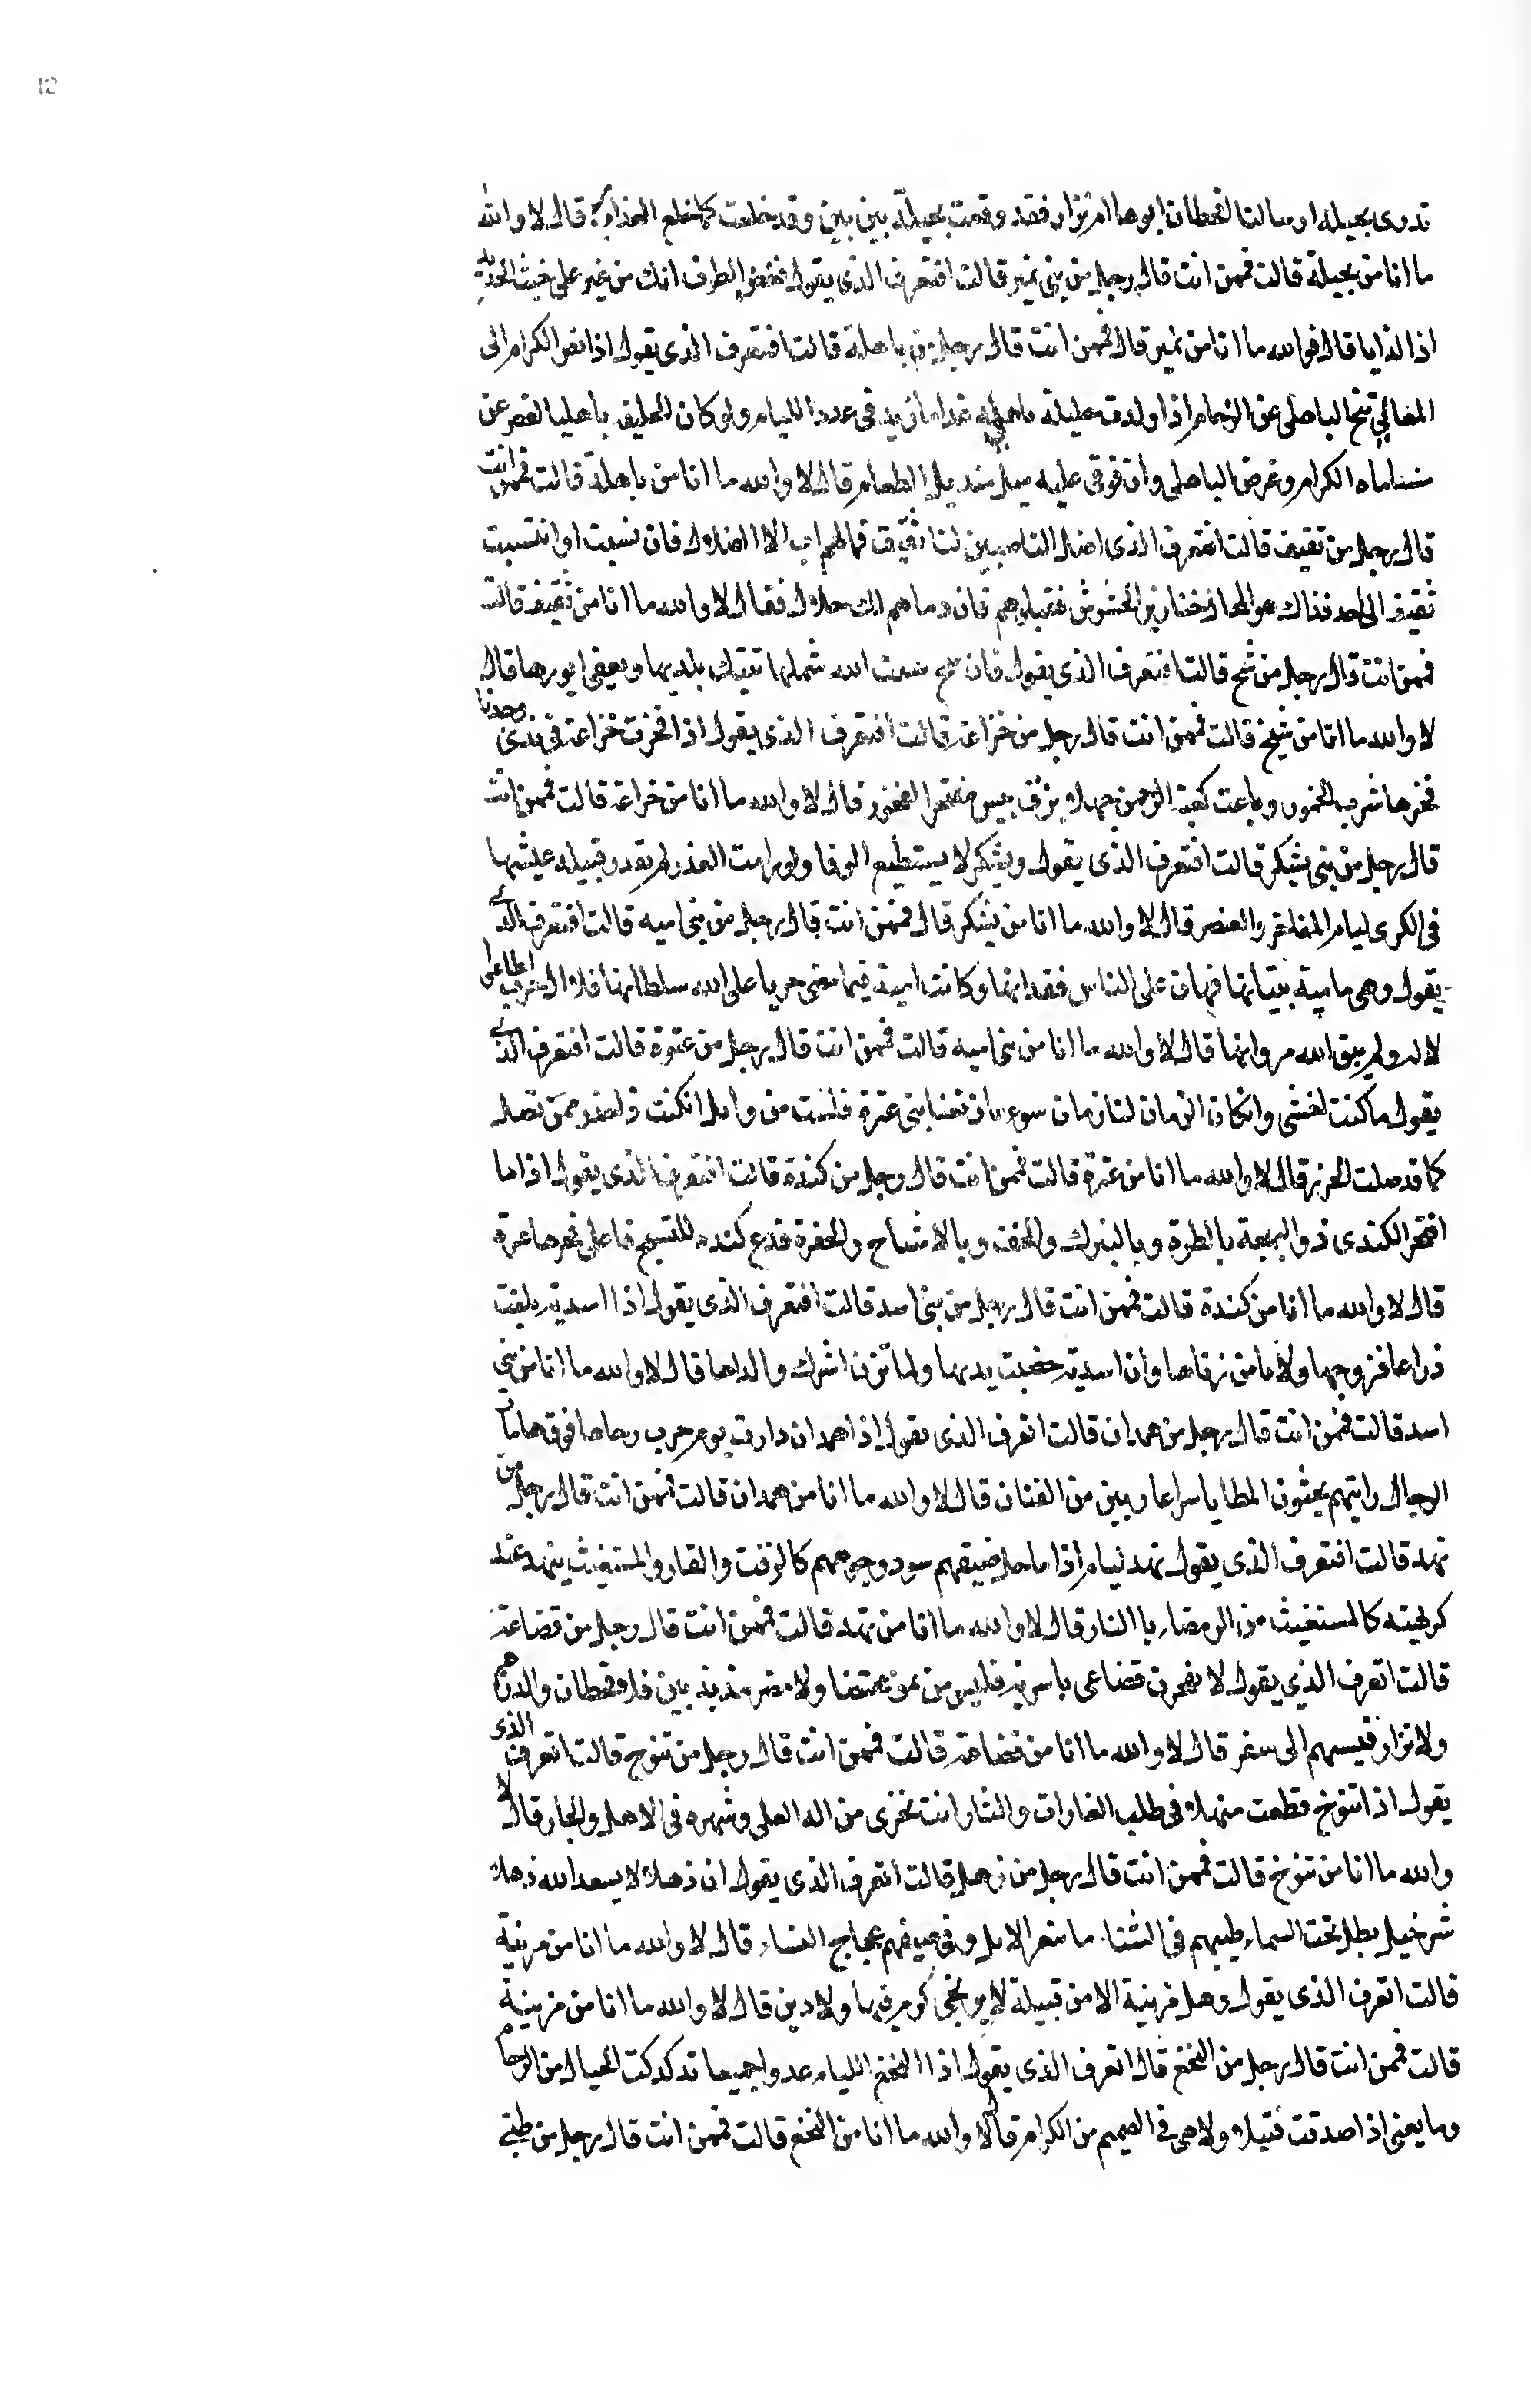 12
تدرى بجيله ام سالنا لقحطان ابوها ام نزار فقد وقعت بجيلة بين بين وقد خلعت كما خلع العذار قال لا والله
ما انا من بجيلة قالت فممن انت قال رجل من بنى نمير قالت افتعرف الذى يقول فغض الطرف انك من نمير على خبث الحديد
اذا لذابا قال فوالله ما انا من نمير قال فممن انت قال رجل من باهلة قالت افتعرف الذى يقول اذا نص الكرام الى
المعالي تنح الباهلى عن الزحام اذا ولدت حليلة باهلي غلاما زيد فى عدد الليام ولو كان الخليفه باهليا لقصر عن
مساماه الكرام وعرض الباهلى وان توقى عليه مثل منديل الطعام قال لا والله ما انا من باهلة قالت فممن انت
قال رجل من ثقيف قالت افتعرف الذى اضل الناسبين لنا ثقيف فمالهم اب الا الضلال فان نسبت او انتسبت
ثقيف الى احد فذاك هو المحال خنازير الحشوش فقتلوهم فان دماهم لك حلال فقال لا والله ما انا من ثقيف قالت
فممن انت قال رجل من قالت افتعرف الذى يقول فان الله شملها بلديها ابورها قال
لا والله ما انا من قالت فممن انت قال رجل من خزاعة قالت افتعرف الذى يقول اذا فخرت خزاعة فى ندى وجدنا
فخرها شرب الخمور وباعت كعبة الرحمن جهلا بزق بيس مفتخر الفخور قال لا والله ما انا من خزاعة قالت فممن انت
قال رجل من بنى يشكر قالت افتعرف الذى يقول ويشكر لا يستطيع الوفا ولو رامت الغدر لم تغدر قبيله عيشها
فى الكرى ليام المفاخر والعنصر قال لا والله ما انا من يشكر قال فممن انت قال رجل من بنى اميه قالت افتعرف الذي
يقول وهى ما مية بنيانها فهان على الناس فقدانها وكانت امية فيما مضى جريا على الله سلطانها فلا ال حرب اطاعوا
لاله ولم يبق الله مروانها قال لا والله ما انا من بنى اميه قالت فممن انت قال رجل من عنزة قالت افتعرف الذي
يقول ما كنت اخشى وان كان الزمان لنا زمان سوء بان تغنا بنى عنزة فلست من وايل ان كنت ذا ممن تصل
كما قد صلت قال لا والله ما انا من عنزة قالت فممن انت قال رجل من كندة قالت افتعرف الذى يقول اذا ما
افتخر الكندى ذو البهجة بالطرة وبالنبرك وبالخف وبالاشباح والحفرة فدع كنده للنسج فاعلى فخرها عرة
قال لا والله ما انا من كندة قالت فممن انت قال رجل من بنى اسد قالت افتعرف الذى يقول اذا اسدية بلغت
ذراعا فزوجها ولا تامن زناها وان اسدية خضبت يديها ولما تزن اشرك والداها قال لا والله ما انا من بني
اسد قالت فممن انت قال رجل من همدان قالت اتعرف الذى يقول اذا همدان دارت يوم حرب رحاها فوق هامات
الرجال رايتهم يحثون المطايا سراعا هاربين من القتال قال لا والله ما انا من همدان قالت فممن انت قال رجل من
نهد قالت افتعرف الذى يقول نهد ليام اذا ما حل ضيفهم سود وجوههم كالزفت والقار والمستغيث بنهد عند
كربته كالمستغيث من الرمضاء باالنار قال لا والله ما انا من نهد قالت فممن انت قال رجل من قضاعة
قالت اتعرف الذي يقول لا يفخرن قضاعى باسرته فليس من يمن محضا ولا مضر مذبذبين فلا قحطان والدهم
ولا نزار فسيبهم الى سقر قال لا والله ما انا من قضاعة قالت فممن انت قال رجل من تنوخ قالت اتعرف الذى
يقول اذا تنوخ قطعت منهلا فى طلب الغارات والثار انت بخزى من اله العلى وشهره فى الاهل والجار قال لا
والله ما انا من تنوخ قالت فممن انت قال رجل من ذهل قالت اتعرف الذى يقول ان ذهلا لا يسعد الله ذهلا
شر خيل بطل تحت السماء طيبهم فى الشتاء ما بعر الابل وفى صيفهم عجاج الفساء قال لا والله ما انا من مزينة
قالت اتعرف الذى يقول وهل مزينة الا من قبيلة لا يرتجى كرم فيها ولا دين قال لا والله ما انا من مزينة
قالت فممن انت قال رجل من النخع قال اتعرف الذى يقول اذا النخع الليام عدوا جميعا تدكدكت الجبال من الزحام
وما يغنى اذا صدقت فتيلا ولا هى فى الصميم من الكرام قال لا والله ما انا من النخع قالت فممن انت قال رجل من طي